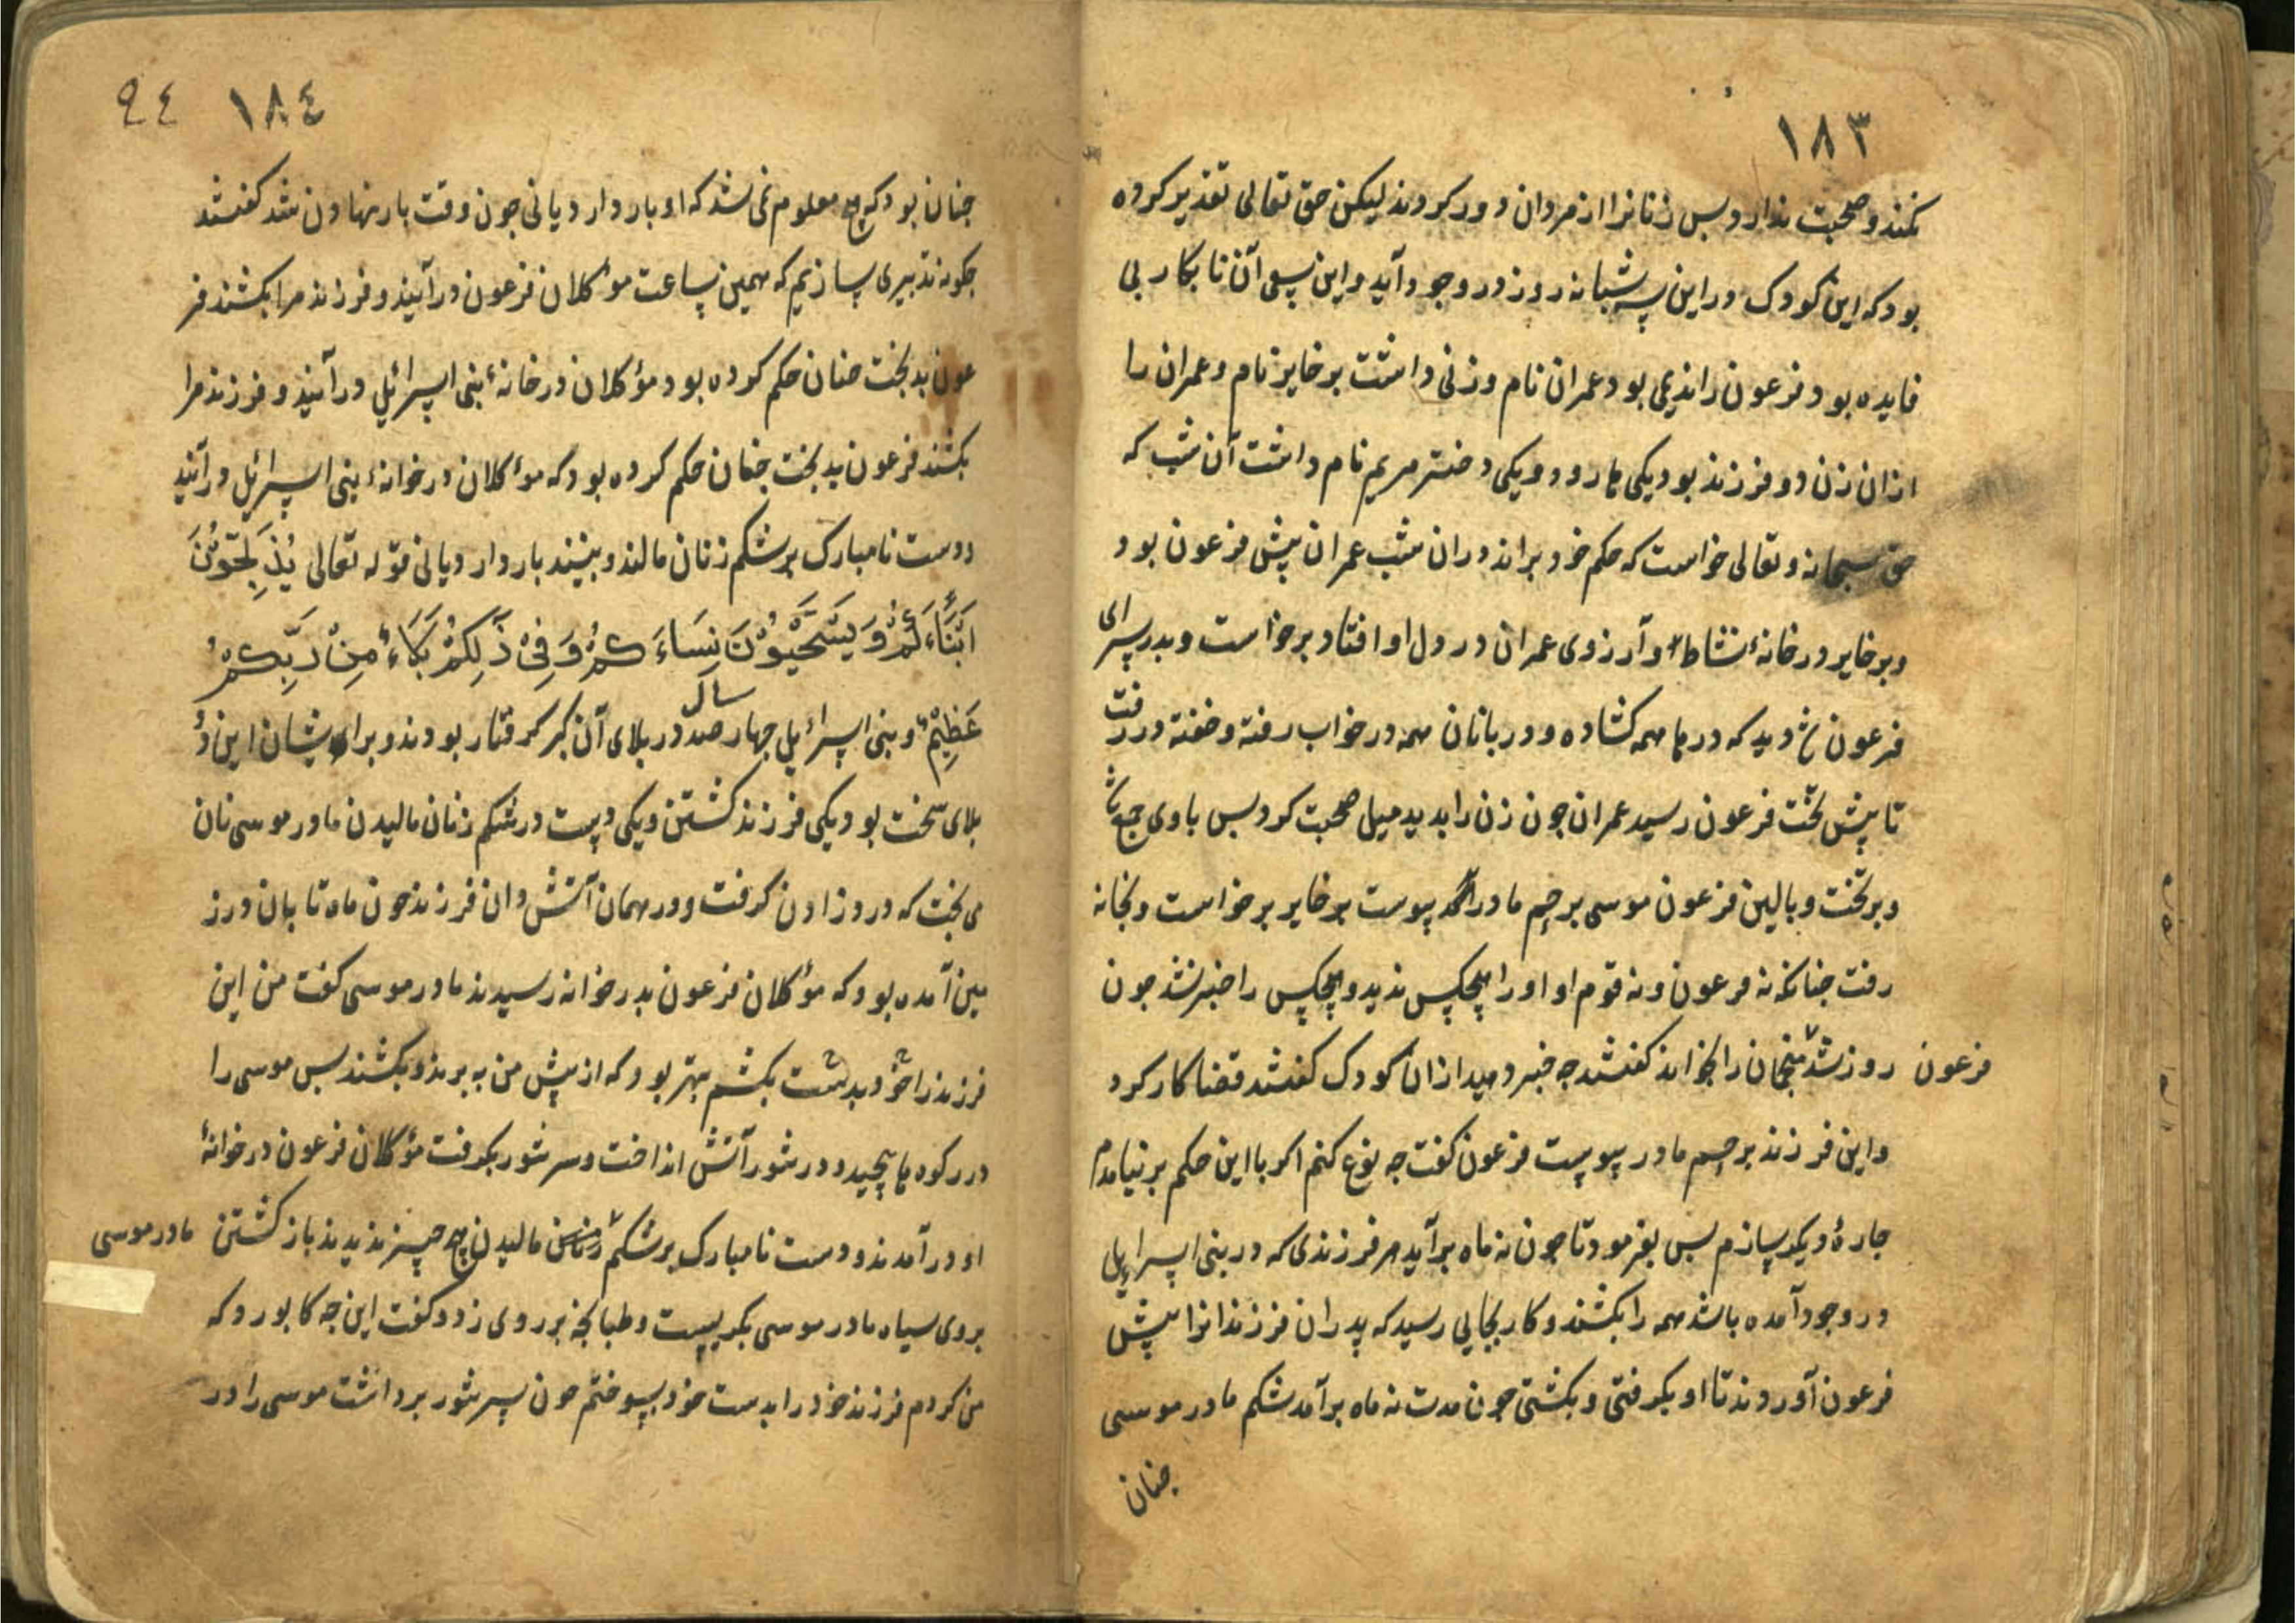 ١٨٣
نکنند و صحبت ندارد بس زنانرا از مردان دور کردند لیکن حق تعالی تقدیر کرده
بود که این کودک در این سه شبانه روز در وجود آید و این سعی آن نابکار بی
فایده بود فرعون را ندیمی بود عمران نام و زنی داشت برخایز نام و عمران را
ازان زن دو فرزند بود یکی هارون و یکی دختر مریم نام داشت آن شب که
حق سبحانه و تعالی خواست که حکم خود براند دران شب عمران پیش فرعون بود
و برخایر در خانهٔ نشاط و آرزوی عمران در دل او افتاد برخواست و بدر سرای
فرعون دید که درها همه کشاده و دربانان همه در خواب رفته و خفته در رفت
تا پیش تخت فرعون رسید عمران جون زن را بدید میل صحبت کرد بس با وی جمع شد
و بر تخت و بالین فرعون موسی برحم مادر پیوست برخایر برخواست و بخانه
رفت جنانکه نه فرعون و نه قوم او او را هیچکس ندید و هیچکس را خبر نشد جون
روز شد فرعون منجمان را بخواند کفتند جه خبر دهید ازان کودک کفتند قضا کار کرد
و این فرزند برحم مادر پیوست فرعون کفت جه نوع کنم اکر با این حکم بر نیامدم
جارهٔ دیکر سازم بس بفرمود تا جون نه ماه برآید هر فرزندی که در بنی اسرایل
در وجود آمده باشد همه را بکشند و کار بجایی رسید که پدران فرزندانرا پیش
فرعون آوردند تا او بکرفتی و بکشتی جون مدت نه ماه برآمد شکم مادر موسی
جنان
١٨٤ ٩٤
جنان بود که هیچ معلوم نمی شد که او باردار د یا نی جون وقت بار نهادن شد کفتند
جکونه تدبیری سازیم که همین ساعت مؤکلان فرعون درآیند و فرزند مرا بکشند فر
عون بدبخت جنان حکم کرده بود مؤکلان در خانهٔ بنی اسرائیل درآیند و فرزند مرا
بکشند فرعون بدبخت جنان حکم کرده بود که مؤکلان در خوانهٔ بنی اسرائیل درآیند
و دست نامبارک بر شکم زنان مالند و ببینند باردار د یا نی قوله تعالی یُذَبِّحُوْنَ
اَبْنَاءَکُمْ وَ یَسْتَحْیُوْنَ نِسَاءَکُمْ وَ فِیْ ذَلِکُمْ بَلَاءٌ مِنْ رَبِّکُمْ
عَظِیْمٌ و بنی اسرائیل جهار صد سال در بلای آن کبر کرفتار بودند و برایشان این دو
بلای سخت بود یکی فرزند کشتن و یکی دست در شکم زنان مالیدن مادر موسی نان
می بخت که درد زادن کرفت و در همان آتش دان فرزند جون ماه تابان در ز
مین آمده بود که مؤکلان فرعون بدر خوانه رسیدند مادر موسی کفت من این
فرزند را خود بدست بکشم بهتر بود که از پیش من به برند و بکشند بس موسی را
در رکوه ها پیچید و در تنور آتش انداخت و سر تنور بکرفت مؤکلان فرعون در خوانهٔ
او درآمدند و دست نامبارک بر شکم مادر موسی مالیدن هیچ چیز ندیدند باز کشتن
بروی سیاه مادر موسی بکریست و طبانجه بر روی زد و کفت این جه کا بود که
من کردم فرزند خود را بدست خود بسوختم جون سر تنور برداشت موسی را در